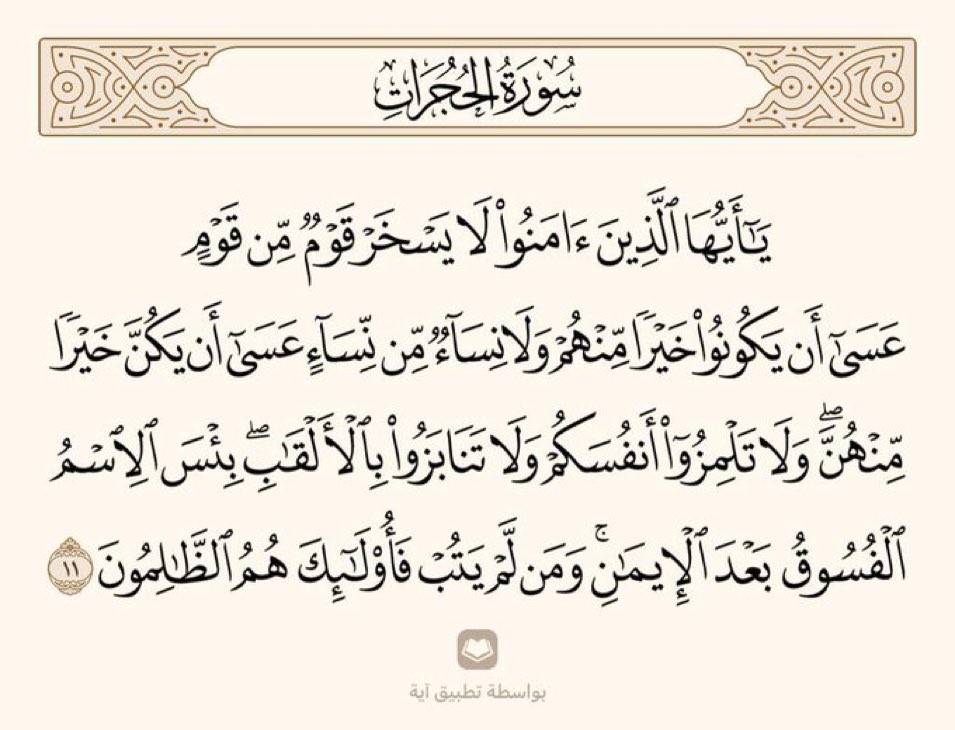 سُورَةُ الحُجُرَاتِ
يَٰٓأَيُّهَا ٱلَّذِينَ ءَامَنُوا۟ لَا يَسْخَرْ قَوْمٌۭ مِّن قَوْمٍ
عَسَىٰٓ أَن يَكُونُوا۟ خَيْرًۭا مِّنْهُمْ وَلَا نِسَآءٌۭ مِّن نِّسَآءٍ عَسَىٰٓ أَن يَكُنَّ خَيْرًۭا
مِّنْهُنَّ ۖ وَلَا تَلْمِزُوٓا۟ أَنفُسَكُمْ وَلَا تَنَابَزُوا۟ بِٱلْأَلْقَٰبِ ۖ بِئْسَ ٱلِٱسْمُ
ٱلْفُسُوقُ بَعْدَ ٱلْإِيمَٰنِ ۚ وَمَن لَّمْ يَتُبْ فَأُو۟لَٰٓئِكَ هُمُ ٱلظَّٰلِمُونَ ١١
بواسطة تطبيق آية